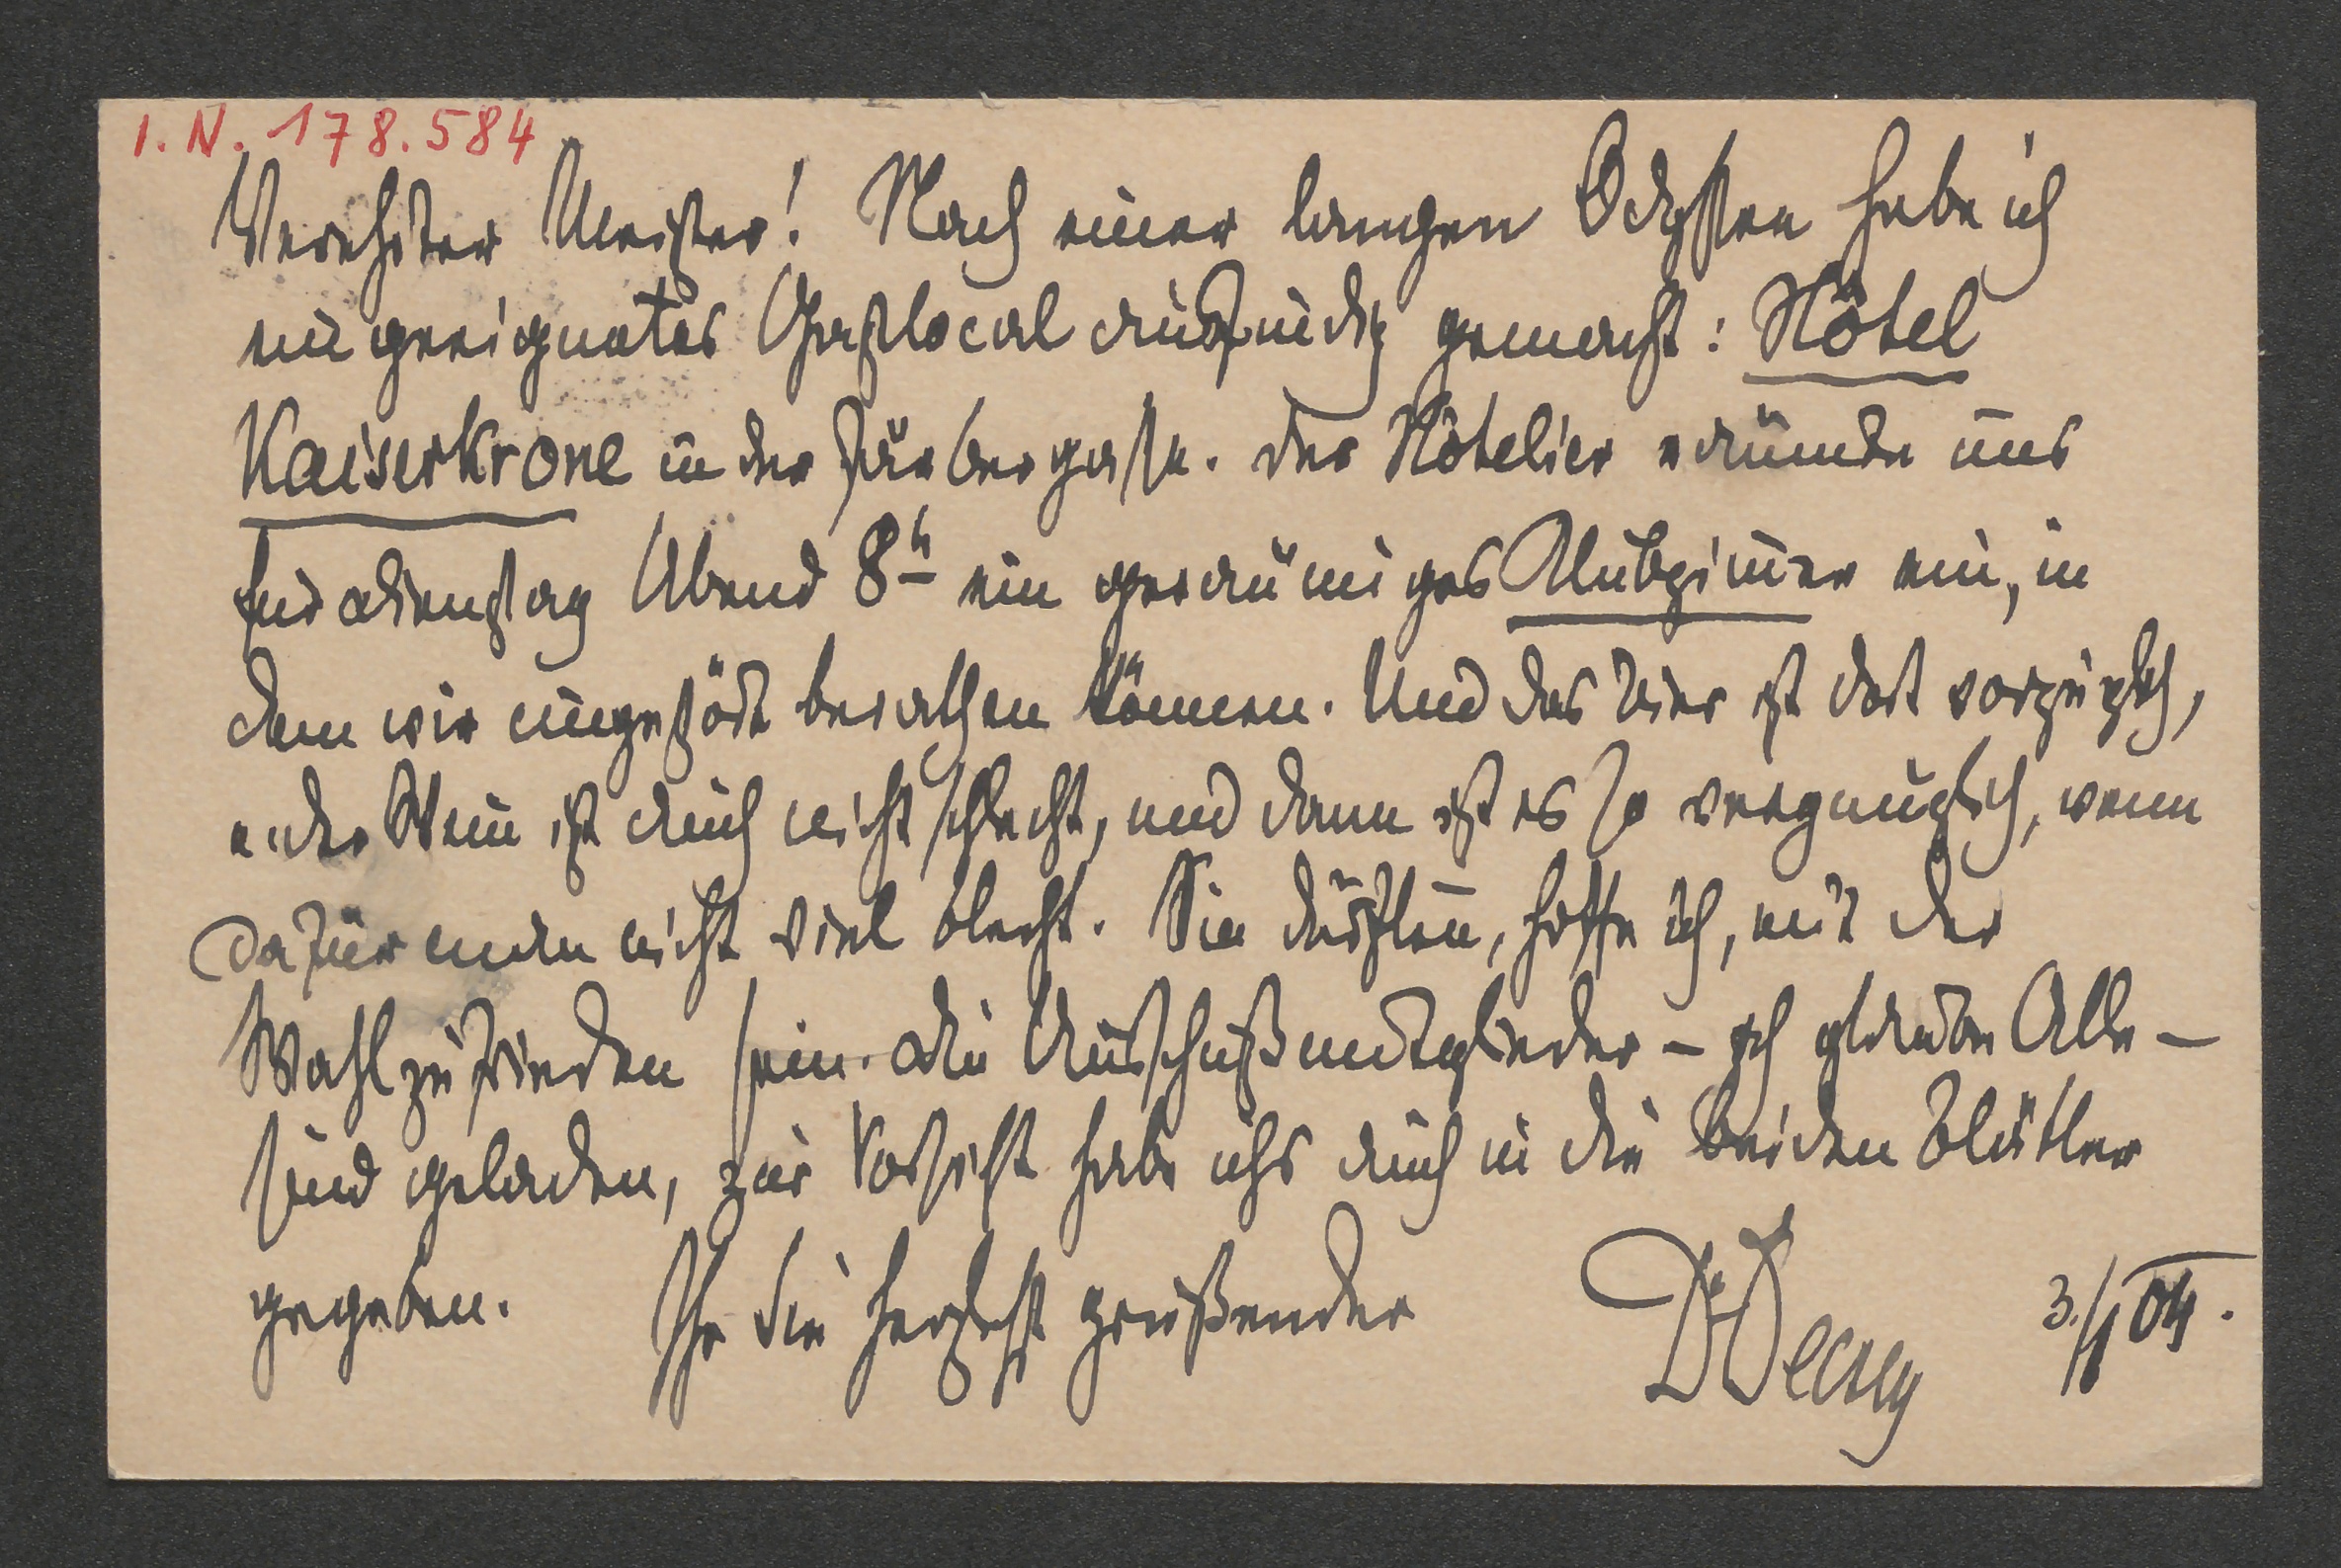 I.N. 178.584
Verehrter Meister! Nach einer langen Odyssee habe ich
ein geeignetes Gastlocal ausfindig gemacht: Hôtel
Kaiserkrone in der Färbergasse. Der Hôtelier räumte uns
für Dienstag Abend 8h ein geräumiges Clubzimmer ein, in
dem wir ungestört berathen können. Und das Bier ist dort vorzüglich,
u. der Wein ist auch nicht schlecht, und dann ist es so vergnüglich, wenn
dafür man nicht viel blecht. Sie dürften, hoffe ich, mit der
Wahl zufrieden sein. Die Ausschußmitglieder – ich glaube Alle –
sind geladen, zur Vorsicht habe ichs auch in die beiden Blätter
gegeben. Ihr Sie herzlichst grüßender Dr 3./I 04.